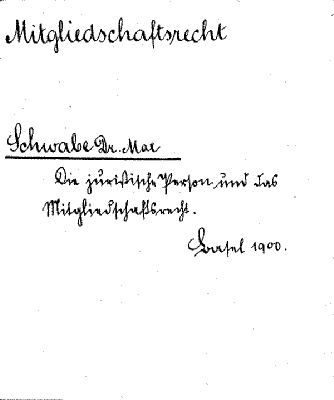 Mitgliedschaftsrecht
Schwabe Dr. Max
Die juristische Person und das
Mitgliedschaftsrecht.
Basel 1900.